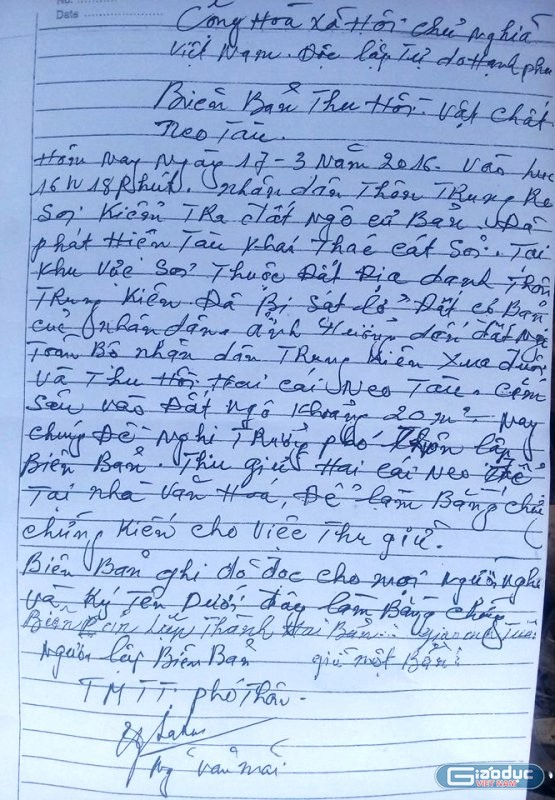 No.:
Date
Cộng Hoà Xã Hội chủ Nghĩa
Việt Nam. Độc lập Tự do Hạnh phú
Biên Bản Thu Hồi. Vật chất
Neo Tàu.
Hôm Nay Ngày 17-3 Năm 2016. Vào lúc
16h 18 Phút. nhân dân Thôn Trung
Soi Kiểm Tra đất Ngô có Bản. Đã
phát Hiện Tàu Khai Thác cát Sỏi. Tại
Khu Vức Soi Thuộc Đất Địa danh Thôn
Trung Kiên Đã Bị Sạt lở Đất có Bản
của nhân dân. ảnh Hưởng đến đất Ngô
Toàn Bộ nhân dân Trung Kiên Xua đuổi
và Thu Hồi Hai cái Neo Tàu. cắm
Sâu vào Đất ngô Khoảng 20 m² Nay
chúng Đề Nghi Trưởng phó Thôn lập
Biên Bản. Thu giữ Hai cái Neo Để
Tại nhà Văn Hoá, Để làm Bằng chứ
chứng Kiến cho Việc Thu giữ.
Biên Bản ghi đó đọc cho mọi Người Nghe
và Ký Tên Dưới đây làm Bằng chứng
Biên Bản Lập Thành Hai Bản..
Người lập Biên Bản giữ một Bản.
TMTT. phó Thôn.
Ng Văn Mái
Giáodục
VIỆT NAM